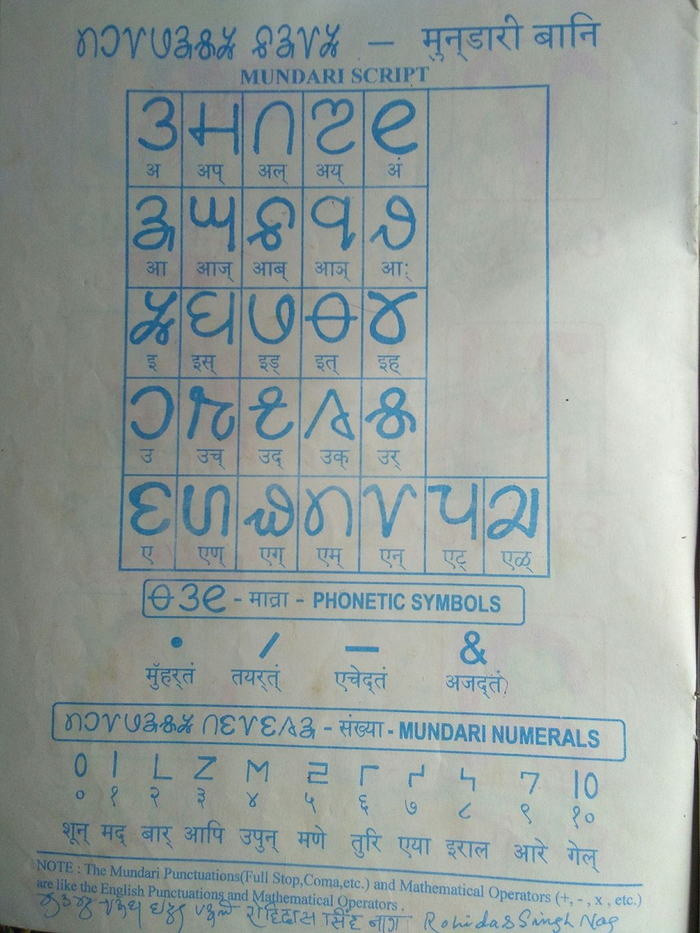 𞓧𞓟𞓨𞓜𞓕𞓣𞓚 𞓗𞓕𞓨𞓚 — मुन्डारी बानि
MUNDARI SCRIPT
𞓐 𞓑 𞓒 𞓓 𞓔
अ अप् अल् अय् अं
𞓕 𞓖 𞓗 𞓘 𞓙
आ आज् आब् आञ् आः
𞓚 𞓛 𞓜 𞓝 𞓞
इ इस् इड् इत् इह्
𞓟 𞓠 𞓡 𞓢 𞓣
उ उच् उद् उक् उर्
𞓤 𞓥 𞓦 𞓧 𞓨 𞓩 𞓪
ए एण् एग् एम् एन् एट् एळ्
𞓝𞓐𞓔 - मात्रा - PHONETIC SYMBOLS
• / — &
मुँहर्‌तं तयर्‌तं एचेद्‌तं अजद्‌तं
𞓧𞓟𞓨𞓜𞓕𞓣𞓚 𞓒𞓤𞓨𞓤𞓢𞓕 - संख्या - MUNDARI NUMERALS
𞓰 𞓱 𞓲 𞓳 𞓴 𞓵 𞓶 𞓷 𞓸 𞓹 𞓱𞓰
० १ २ ३ ४ ५ ६ ७ ८ ९ १०
शून् मद् बार् आपि उपुन् मणे तुरि एया इराल आरे गेल्
NOTE : The Mundari Punctuations(Full Stop,Coma,etc.) and Mathematical Operators (+, - , x , etc.)
are like the English Punctuations and Mathematical Operators .
रोहिदास सिंह नाग Rohidas Singh Nag